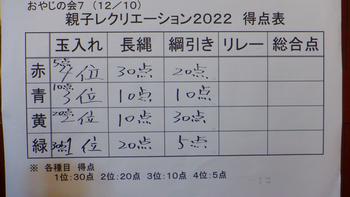 おやじの会7 (12/10)
親子レクリエーション2022 得点表
玉入れ 長縄 綱引き リレー 総合点
赤 5点 4位 30点 20点
青 10点 3位 10点 10点
黄 20点 2位 10点 30点
緑 30点 1位 20点 5点
※ 各種目 得点
1位:30点 2位:20点 3位:10点 4位:5点